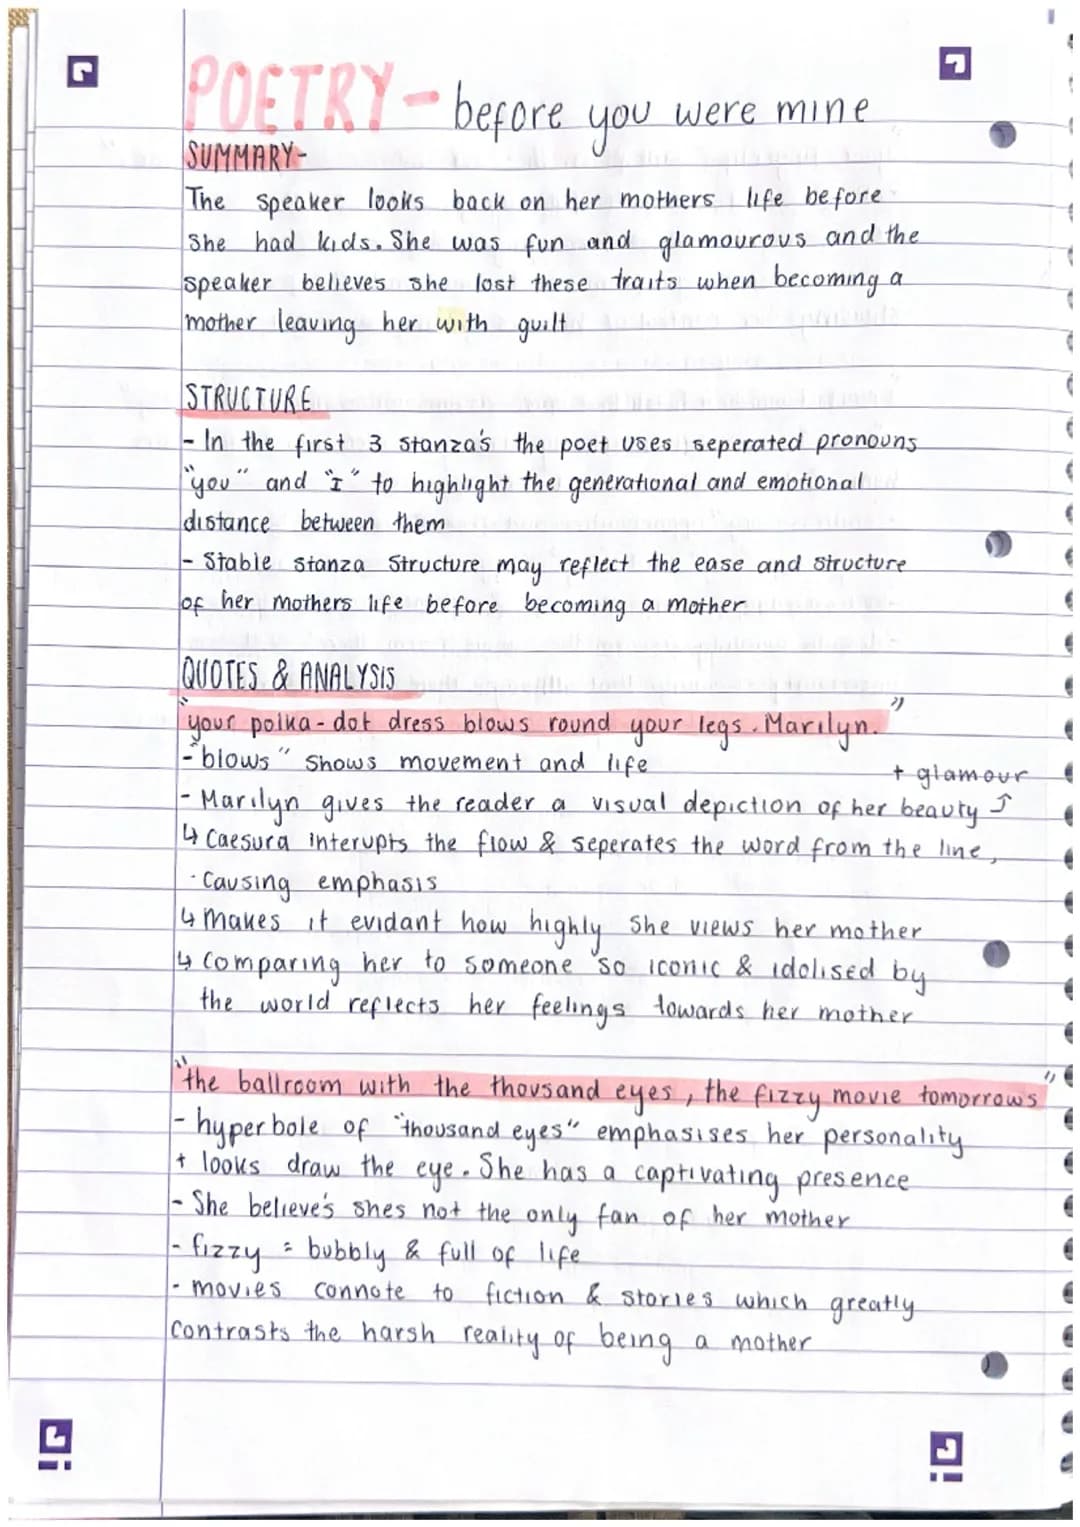 POETRY - before you were mine
SUMMARY-
The speaker looks back on her mothers life before
she had kids. She was fun and glamourous and the
speaker believes she lost these traits when becoming a
mother leaving her with guilt
STRUCTURE
- In the first 3 stanza's the poet uses seperated pronouns
"you" and "I" to highlight the generational and emotional
distance between them
- Stable stanza structure may reflect the ease and structure
of her mothers life before becoming a mother
QUOTES & ANALYSIS
"your polka-dot dress blows round your legs. Marilyn."
- "blows" shows movement and life
+ glamour
- Marilyn gives the reader a visual depiction of her beauty ⤴
↳ Caesura interupts the flow & seperates the word from the line,
· Causing emphasis
↳ makes it evidant how highly she views her mother
↳ Comparing her to someone so iconic & idolised by
the world reflects her feelings towards her mother
"the ballroom with the thousand eyes, the fizzy movie tomorrows"
- hyperbole of "thousand eyes" emphasises her personality
+ looks draw the eye. She has a captivating presence
- She believe's shes not the only fan of her mother
- fizzy = bubbly & full of life
- movies connote to fiction & stories which greatly
contrasts the harsh reality of being a mother